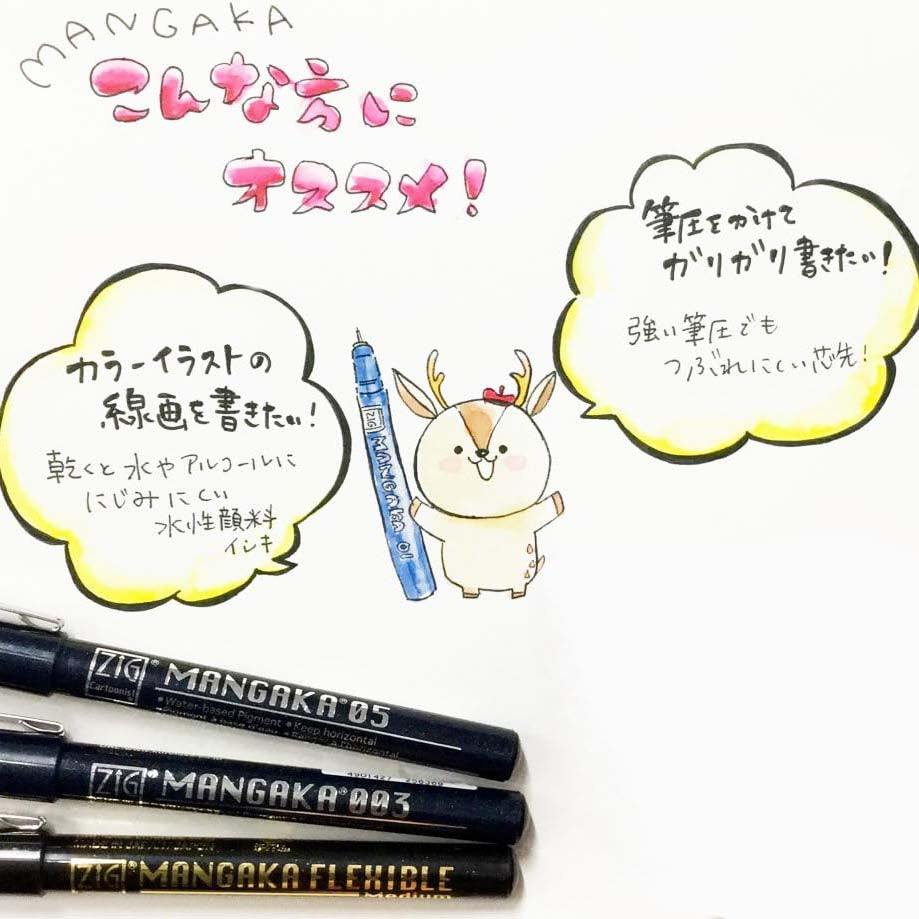 MANGAKA
こんな方に
オススメ!
筆圧をかけて
ガリガリ書きたい!
強い筆圧でも
つぶれにくい芯先!
カラーイラストの
線画を書きたい!
乾くと水やアルコールに
にじみにくい
水性顔料
インキ
ZIG MANGAKA 01
ZIG® MANGAKA®05
Cartoonist
•Water-based Pigment •Keep horizontal
ZIG® MANGAKA®003
4901427
ZIG® MANGAKA FLEXIBLE
Medium